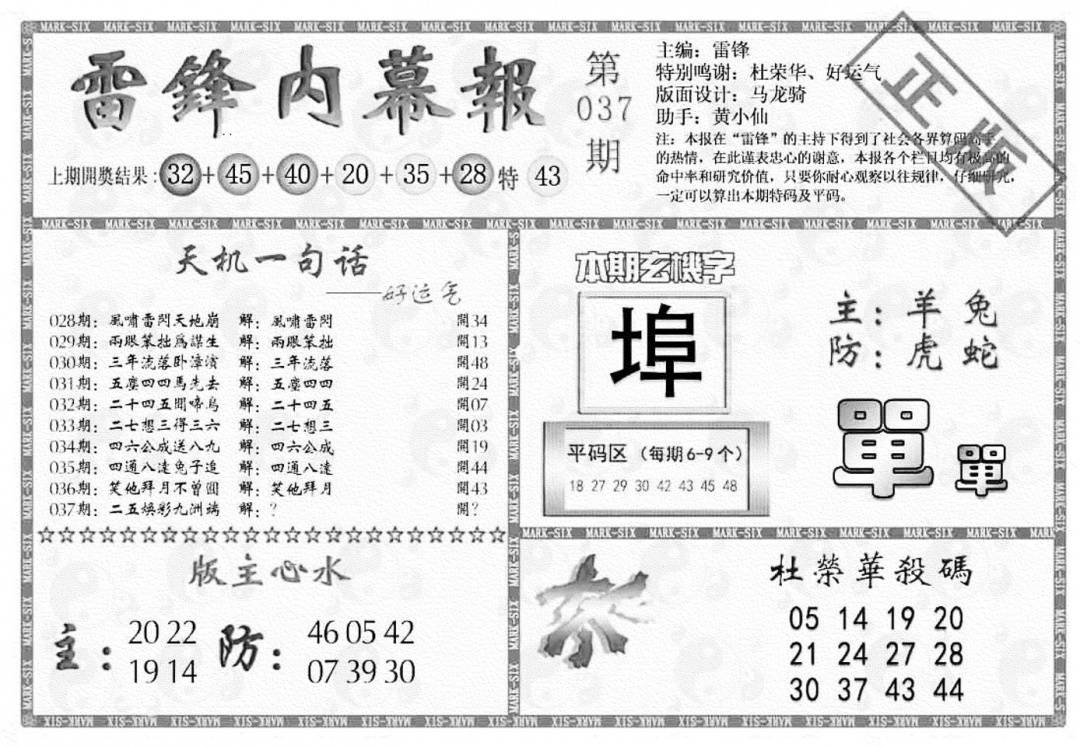 雷鋒内幕報
第
037
期
主编：雷锋
特别鸣谢：杜荣华、好运气
版面设计：马龙骑
助手：黄小仙
注：本报在“雷锋”的主持下得到了社会各界算码高手
的热情，在此谨表忠心的谢意，本报各个栏目均有极高的
命中率和研究价值，只要你耐心观察以往规律，仔细研究，
一定可以算出本期特码及平码。
正版
上期開獎结果：32+45+40+20+35+28特 43
天机一句话
——好运气
028期：風嘯雷閃天地崩 解：風嘯雷閃 開34
029期：兩眼笨拙為謀生 解：兩眼笨拙 開13
030期：三年流落卧漳濱 解：三年流落 開48
031期：五塵四四馬先去 解：五塵四四 開24
032期：二十四五聞啼鳥 解：二十四五 開07
033期：二七想三得三六 解：二七想三 開03
034期：四六公成送八九 解：四六公成 開19
035期：四通八達兔子追 解：四通八達 開44
036期：笑他拜月不曾圓 解：笑他拜月 開43
037期：二五煥彩九洲端 解：？ 開？
本期玄機字
埠
主：羊 兔
防：虎 蛇
平码区（每期6-9个）
18 27 29 30 42 43 45 48
單 單
版主心水
主：20 22 防：46 05 42
19 14 07 39 30
杀
杜榮華殺碼
05 14 19 20
21 24 27 28
30 37 43 44
MARK-SIX